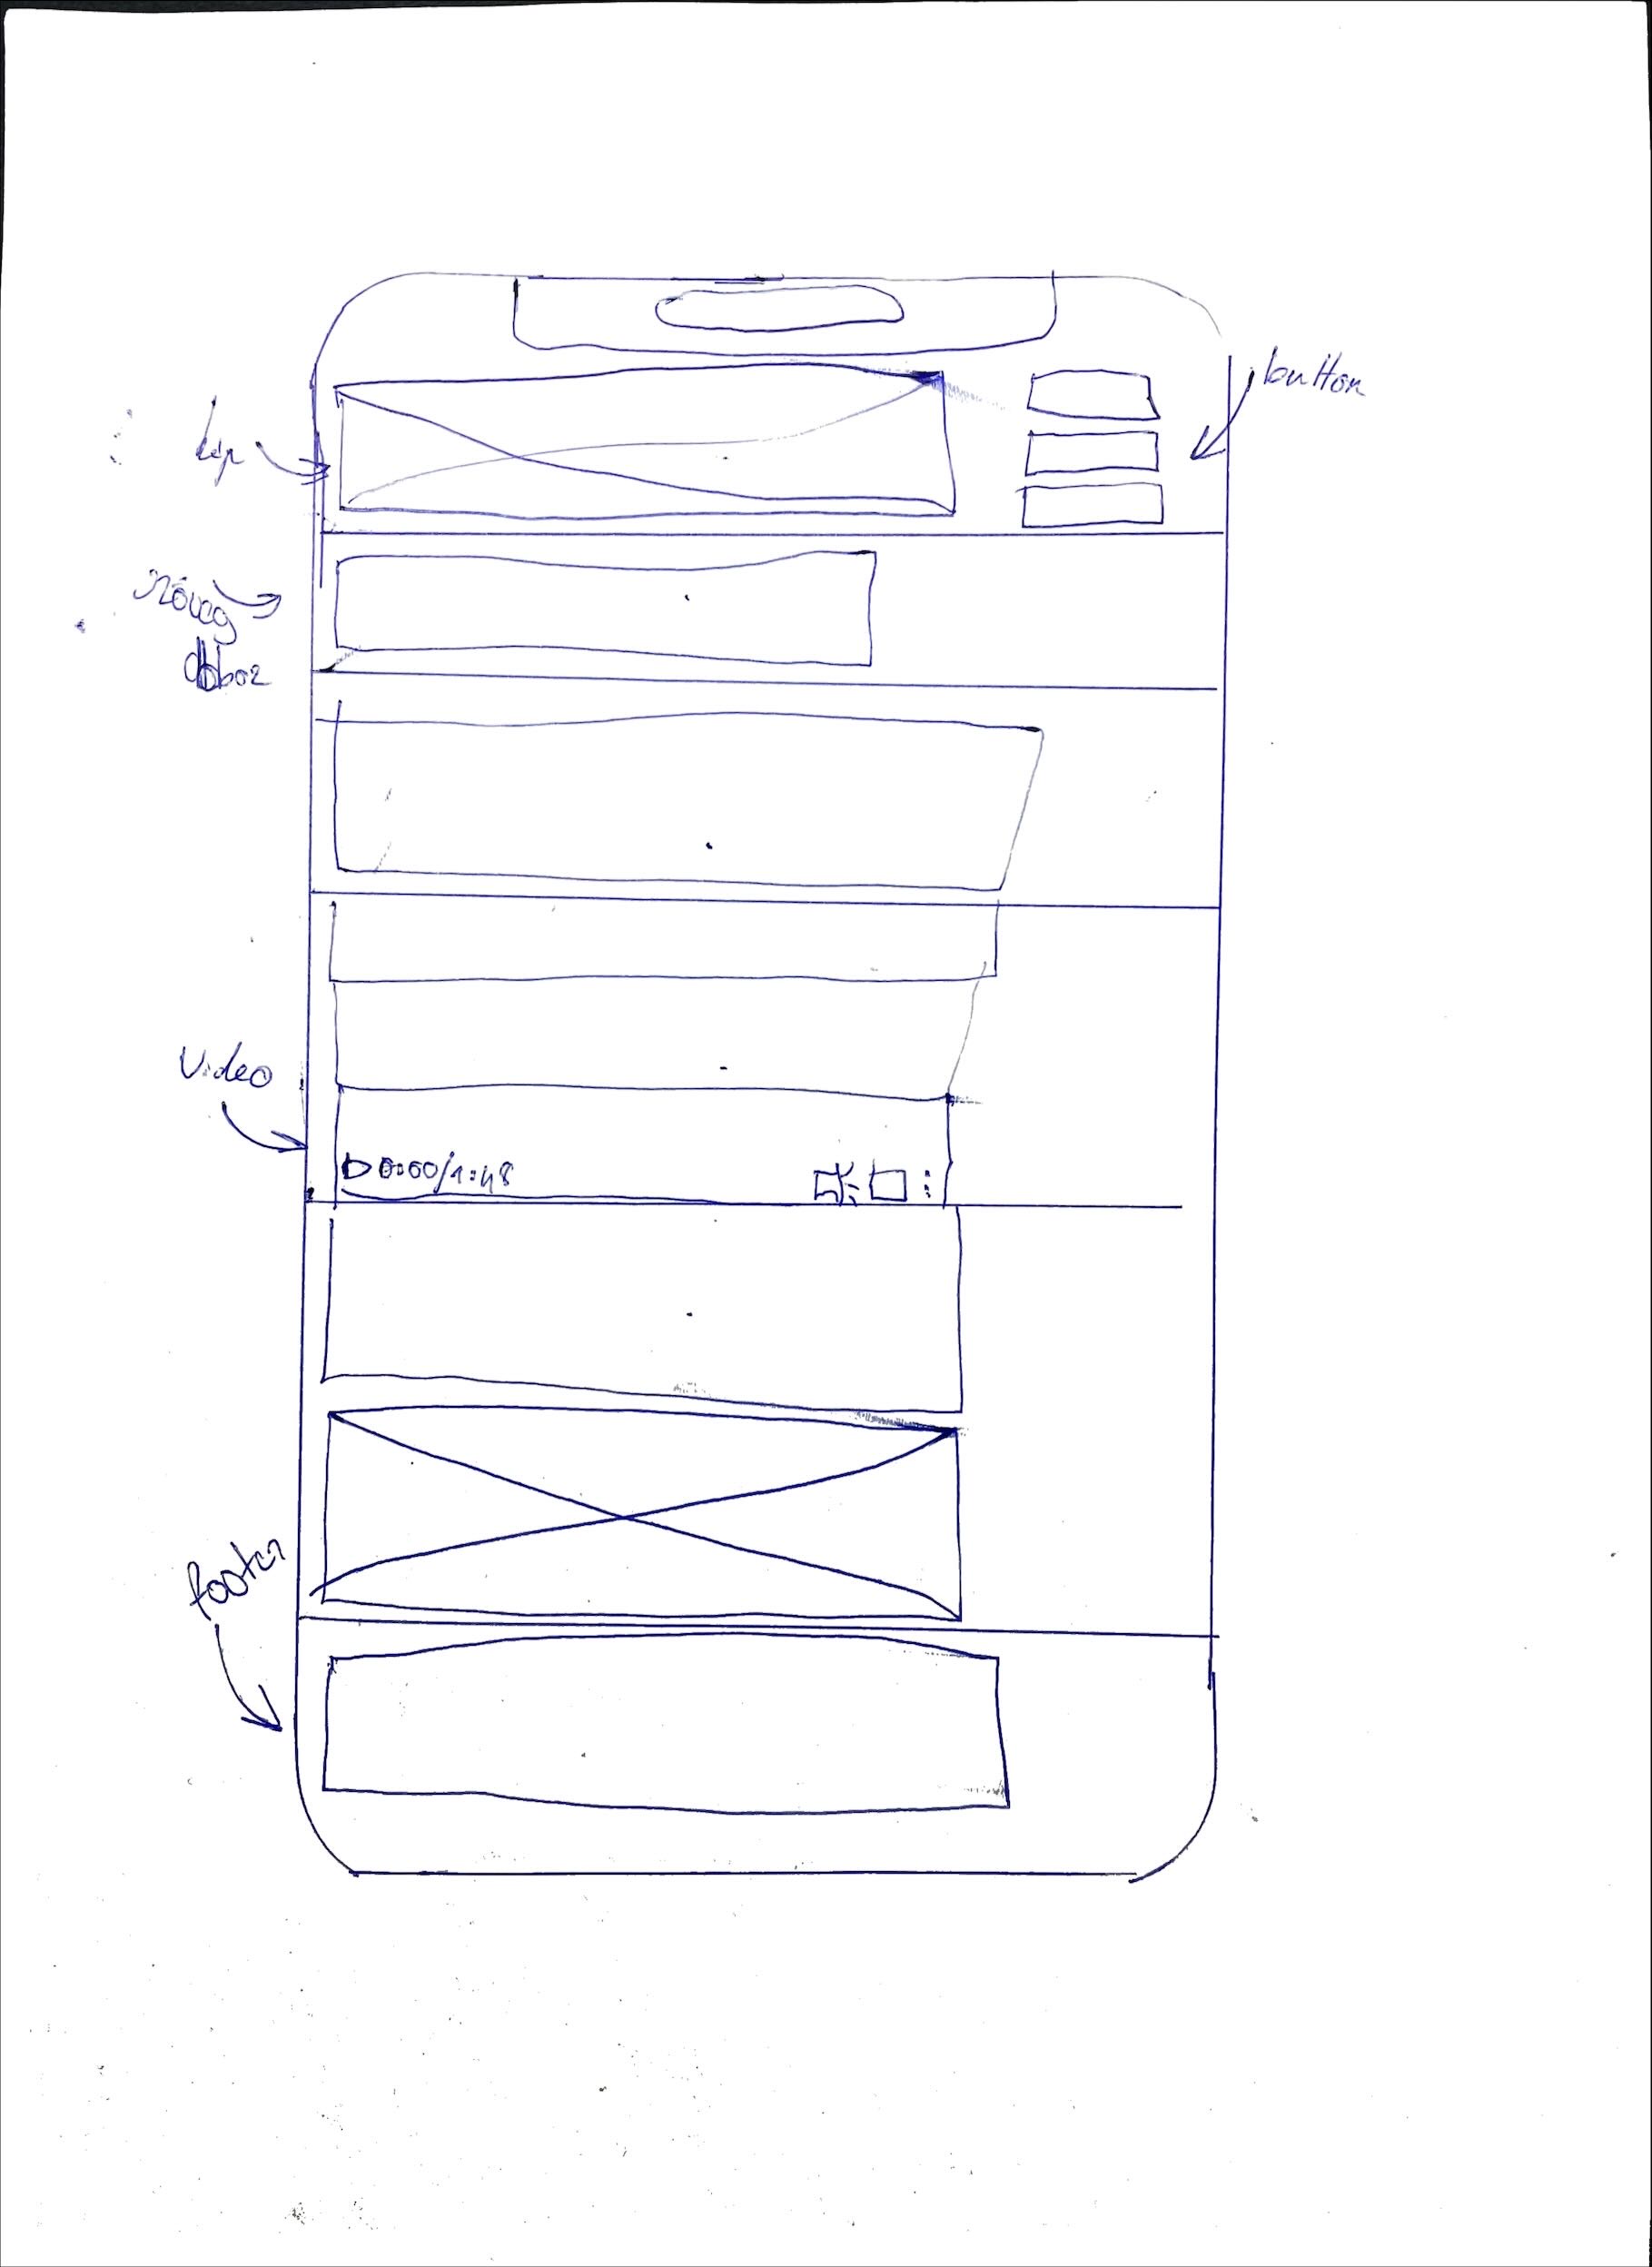 button
kép
szöveg
doboz
Video
0:00/1:48
footer